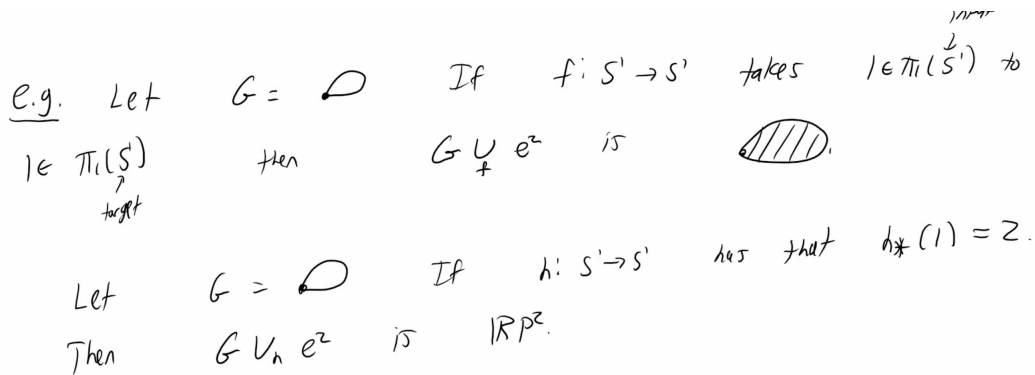 input
e.g. Let G = If f: S¹ → S¹ takes 1 ∈ π₁(S¹) to
1 ∈ π₁(S) then G ∪_f e² is .
target
Let G = If h: S¹ → S¹ has that h_*(1) = 2.
Then G ∪_h e² is ℝP².